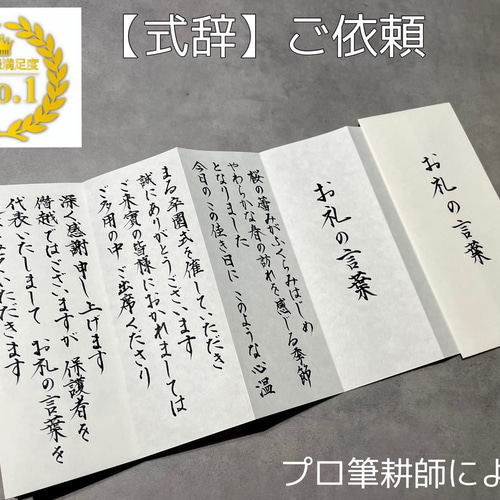 【式辞】ご依頼
満足度
o.1
お礼の言葉
お礼の言葉
桜の蕾みがふくらみはじめ
やわらかな春の訪れを感じる季節
となりました
今日の この佳き日に このような心温
まる卒園式を催していただき
誠にありがとうございます
ご来賓の皆様におかれましては
ご多用の中 ご出席くださり
深く感謝申し上げます
僭越ではございますが 保護者を
代表いたしまして お礼の言葉を
プロ筆耕師によ